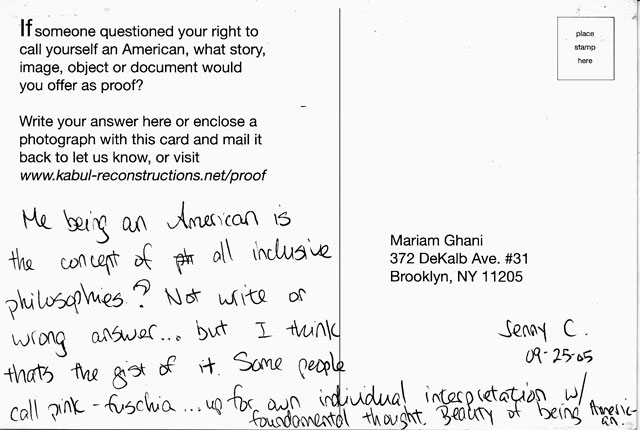 If someone questioned your right to
call yourself an American, what story,
image, object or document would
you offer as proof?
Write your answer here or enclose a
photograph with this card and mail it
back to let us know, or visit
www.kabul-reconstructions.net/proof
Me being an American is
the concept of all inclusive
philosophies? Not write or
wrong answer... but I think
thats the gist of it. Some people
call pink - fuschia ... up for own individual interpretation w/
foundamental thought. Beauty of being Americ-
an.
place
stamp
here
Mariam Ghani
372 DeKalb Ave. #31
Brooklyn, NY 11205
Jenny C.
09-25-05